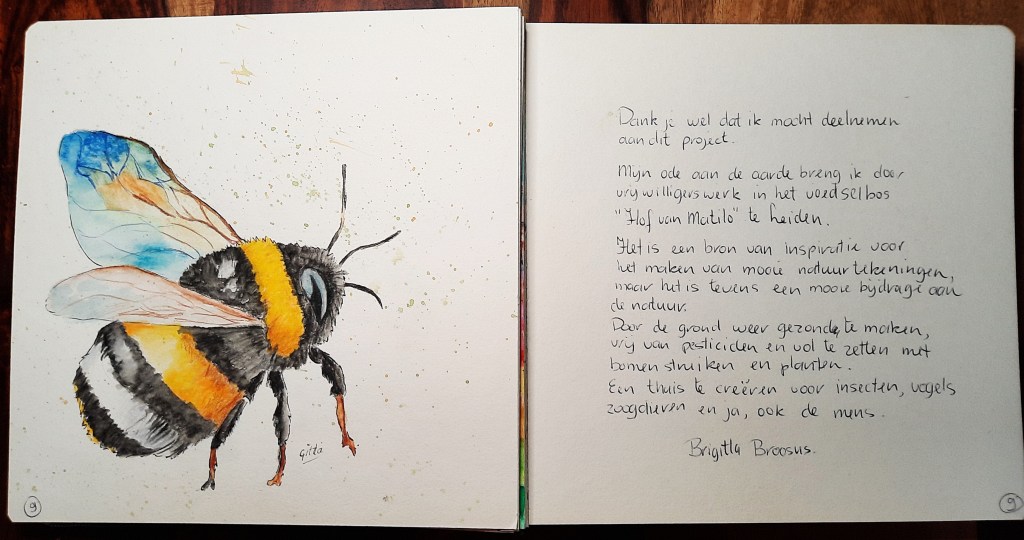 gitta
9
Dank je wel dat ik mocht deelnemen
aan dit project.
Mijn ode aan de aarde breng ik door
vrijwilligerswerk in het voedselbos
"Hof van Matilo" te Leiden.
Het is een bron van inspiratie voor
het maken van mooie natuurtekeningen,
maar het is tevens een mooie bijdrage aan
de natuur.
Door de grond weer gezond te maken,
vrij van pesticiden en vol te zetten met
bomen struiken en planten.
Een thuis te creëren voor insecten, vogels
zoogdieren en ja, ook de mens.
Brigitta Broosus.
9